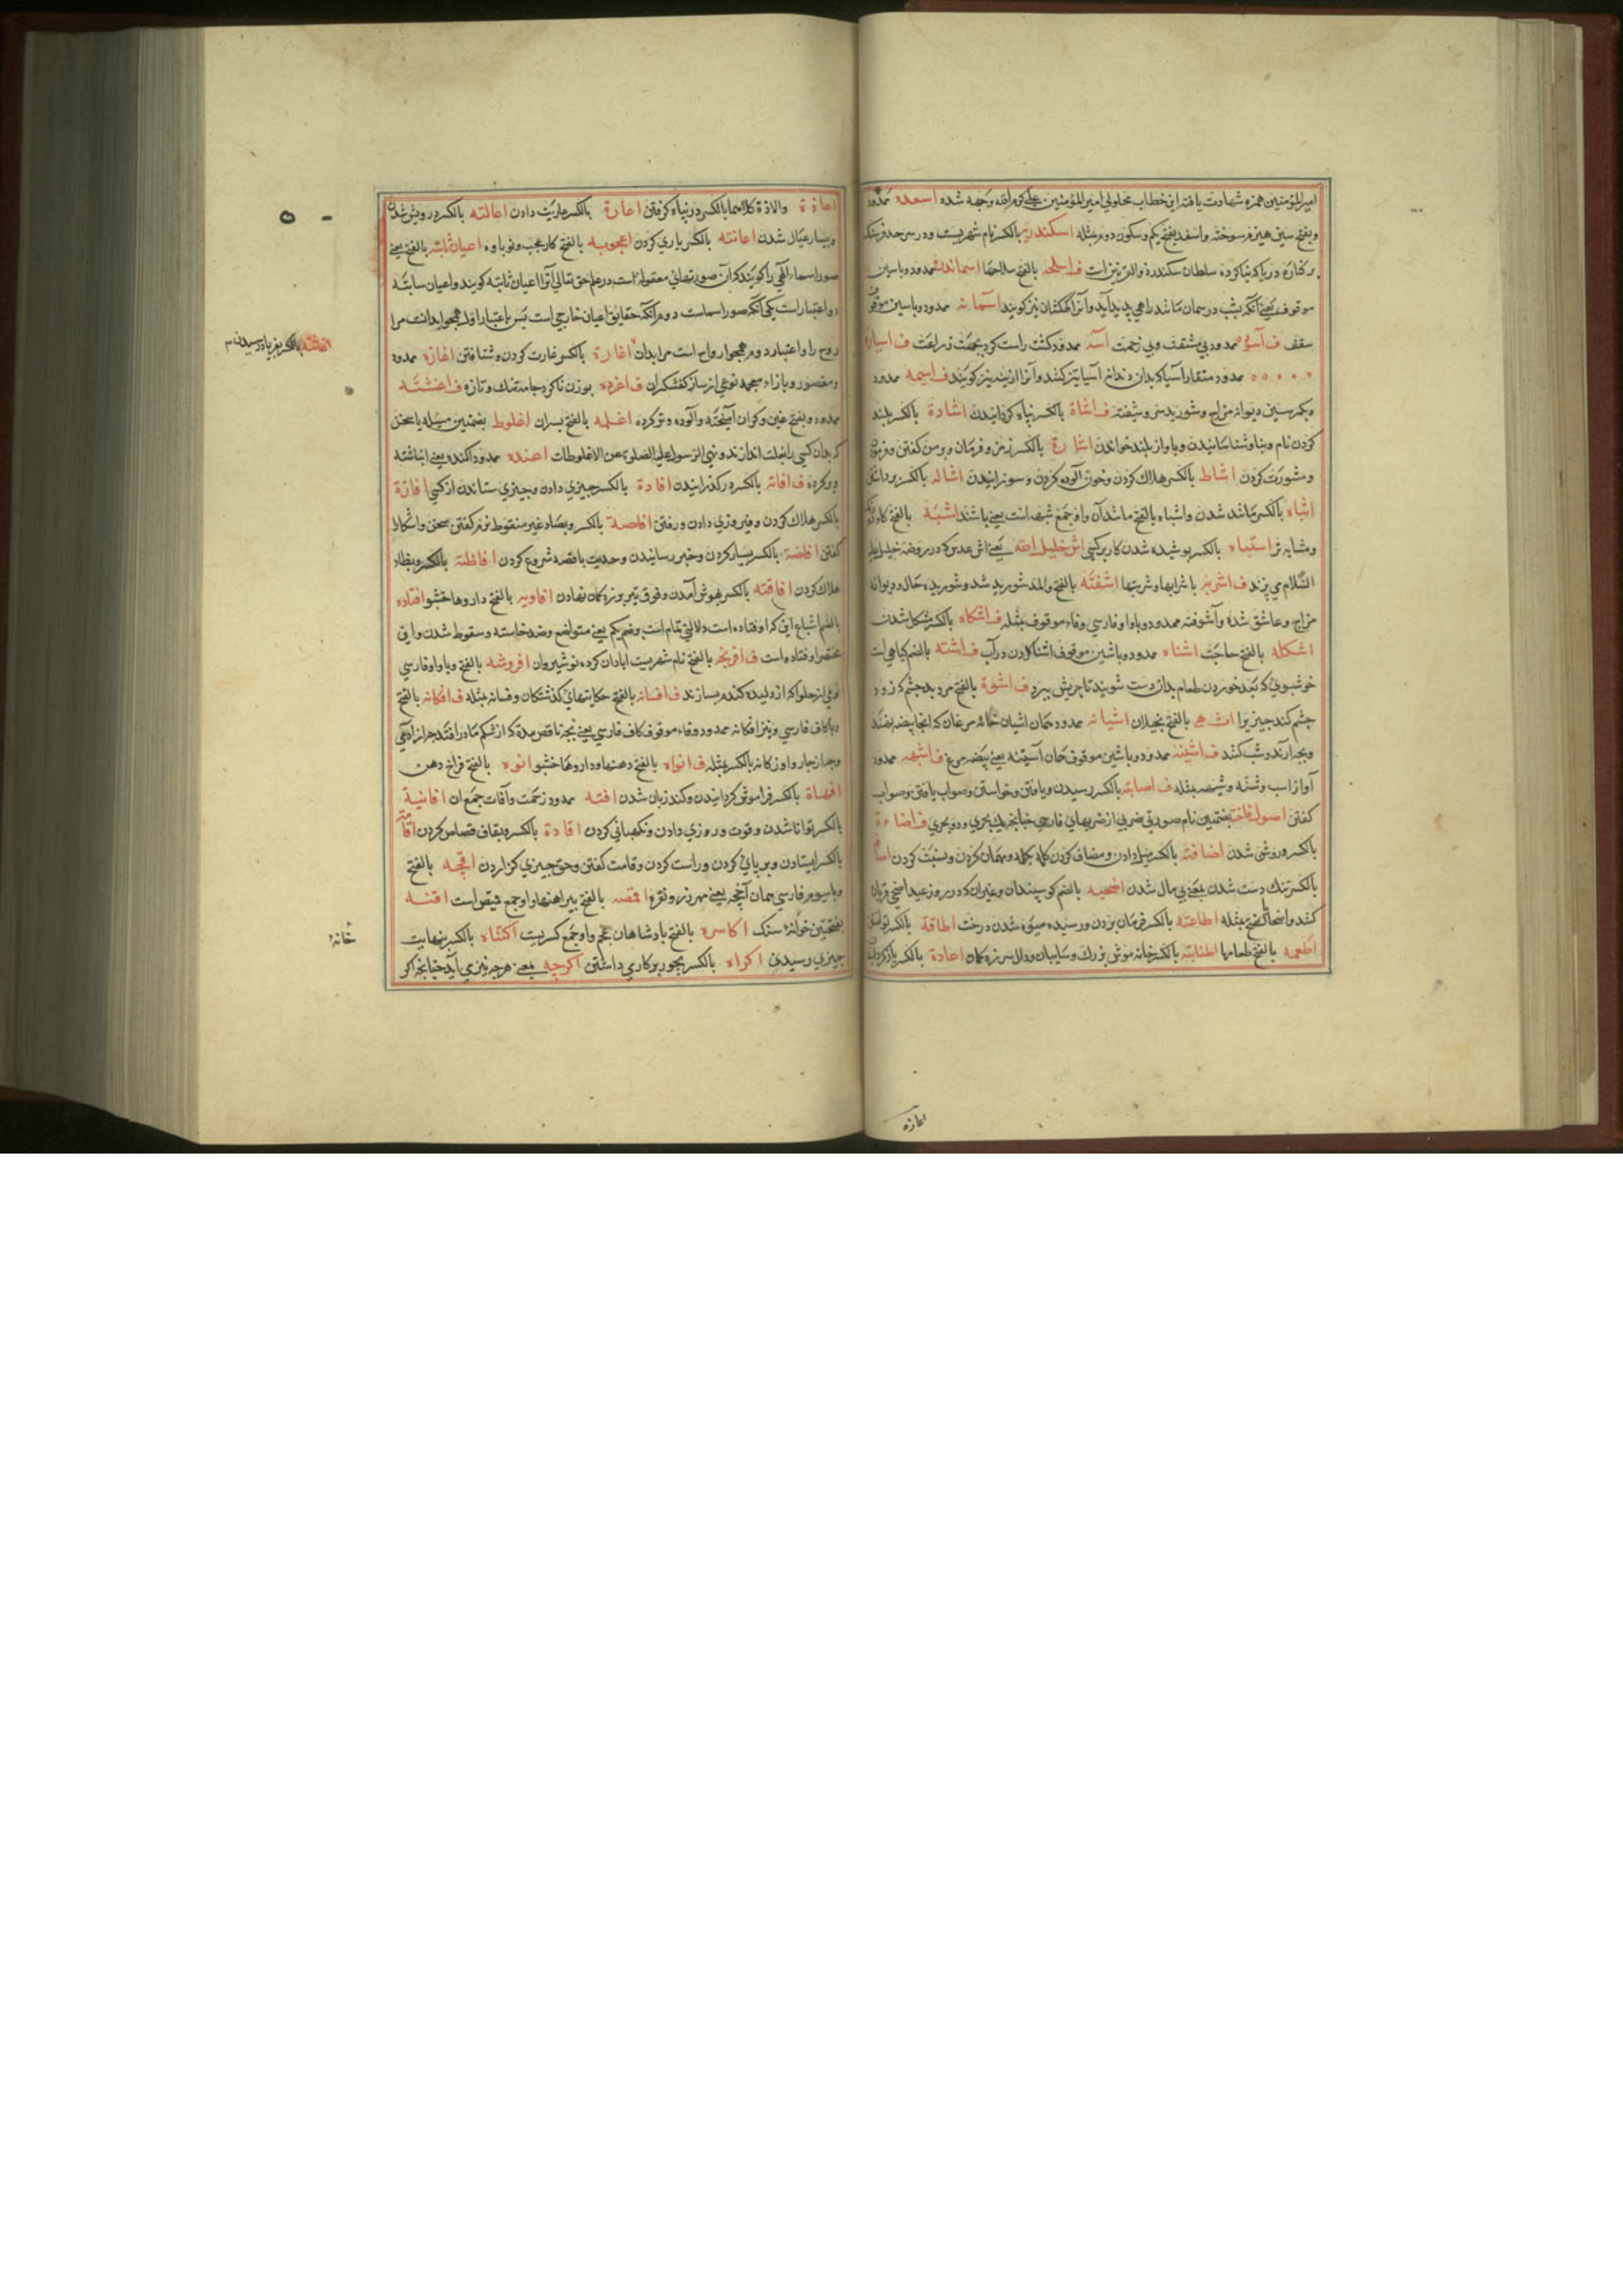 امیر المؤمنین حمزه شهادت یافته این خطاب بحلولی امیر المؤمنین علی کرم الله وجهه شده اسعده ممدود
وبفتح سین هیزم سوخته واسغد بفتح یکم وسکون دوم مثله اسکندریه بالکسر نام شهریست ودر سرحد فرنك
بر کناره دریا که بنا کرده سلطان سکندر اسلحه بالفتح سلاحها ممدود وباسین
موقوف یعنی آنکه بشب در آسمان مانند راهی پدید آید وآنرا کهکشان نیز کویند آسمانه ممدود وباسین موقوف
سقف ف آسوده ممدود بی مشقت وبی زحمت آسه ممدود کشت راست کرده بجهت زراعت ف
ممدود منقار آسیا که بدان دندانه آسیا تیز کنند وآنرا نیز کویند ف اسیمه ممدود
وبکسر سین دیوانه مزاج وشوریده سر وشیفته ف اشاة بالکسر کردانیدن اشادة بالکسر بلند
کردن نام وبناوشناسانیدن وباواز بلند خواندن اشارة بالکسر رمز وفرمان
ومشورت کردن اشاط بالکسر هلاك کردن وخون آلوده کردن وسوزانیدن اشاله بالکسر برداشتن
اشباه بالکسر مانند شدن واشباه بالفتح مانند آن واو جمع شبه است یعنی باشد اشبه بالفتح
ومشابه تر اشتباه بالکسر پوشیده شدن کار بر کسی اش خلیل الله یعنی اش عدس که در روضه خلیل علیه
السلام می پزند ف اشربه باشرابها وشربتها اشفته بالفتح والمد شوریده شد وشوریده حال ودیوانه
مزاج وعاشق شده وآشوفته ممدود وباواو فارسی وفاء موقوف مثله ف اشکاه بالکسر مشکل شدن
اشکله بالفتح حاجت اشناه ممدود وباشین موقوف اشنا کردن در آب ف اشنه بالضم کیاهی است
خوشبوی که بعد خوردن طعام بدان دست شویند تا چربش ببرد ف اشوه بالفتح مرد بد چشم که زود
چشم کند چیزیرا بالفتح بخیلان اشیانه ممدود همان اشیان خانه مرغان که انجا بیضه نهند
وبچه آرند وشب کنند ف اشینه ممدود وباشین موقوف همان آستینه یعنی بیضه مرغ ف اشیهه ممدود
آواز اسب وشنه وشیهه مثله ف اصابة بالکسر رسیدن ویافتن وخواستن وصواب یافتن وصواب
کفتن اصول فاخته بضمتین نام صورتی ضربی از ضربهای فارسی چنانچه یك بحری ودو بحری ف اضاءة
بالکسر روشن شدن اضافة بالکسر میل دادن ومضاف کردن کله بکله ومهمان کردن ونسبت کردن
بالکسر تنك دست شدن یعنی بی مال شدن اضحیه بالضم کوسپندان وغیران که در روز عید اضحی قربان
کنند واضحاة بفتح مثله اطاعة بالکسر فرمان بردن ورسیده میوه شدن درخت اطاقة بالکسر
اطعمه بالفتح طعامها اطنابة بالکسر خانه موش بزرك وسایبان ودوال سر زه کمان اعادة بالکسر باز کردن
اعاذة والاذة کلاهما بالکسر در پناه کرفتن اعارة بالکسر عاریت دادن اعالته بالکسر درویش شدن
وبسیار عیال شدن اعانته بالکسر یاری کردن اعجوبه بالفتح کار عجب ونوباوه اعیان ثابته بالفتح یعنی
صور اسماء الهی را کویند که آن صورتهای معقوله است در علم حق تعالی آنرا اعیان ثابته کویند واعیان ثابته
دو اعتبار است یکی آنکه صور اسماست دوم آنکه حقایق اعیان خارجی است پس باعتبار اول همچو ابدانست مر
روح را واعتبار دوم همچو ارواح است مر ابدان اغارة بالکسر غارت کردن وشتافتن اغازه ممدود
ومقصور وبازاء معجمه نوعی از ساز کفشکران ف اغرده بوزن ناکرده جامه تنك وتازه ف اغشته
ممدود وبفتح غین وکران آمیخته وآلوده وتر کرده اغلمه بالفتح پسران اغلوط بضمتین مسئله یا سخن
که بدان کسی را بغلت اندازند ونهی الرسول علیه الصلوة عن الاغلوطات اغنده ممدود اکنده یعنی انباشته
وپرکرده ف افاته بالکسر در کذرانیدن افادة بالکسر چیزی دادن وچیزی ستاندن از کسی افازة
بالکسر هلاك کردن وفیروزی دادن ورفتن افاصة بالکسر وبصاد غیر منقوط نرم کفتن سخن واشکارا
کفتن افاضة بالکسر بسیار کردن وخبر رسانیدن وحدیث باقصه شروع کردن افاظة بالکسر وبظاء
هلاك کردن افاقته بالکسر بهوش آمدن وفوق تیر بر زه کمان نهادن افاویه بالفتح داروها خشبو افتاده
بالضم اشباع این کر اوفتاده است دلالتی تمام است وضم یکم یعنی متواضع وضد خاسته وسقوط شدن واین
مختصر اوفتاده است ف افرنجه بالفتح نام شهریست ابادان کرده نوشیروان افروشه بالفتح وباواو فارسی
نوعی از حلوا که از دلیده کندم سازند ف افسانه بالفتح حکایتهای کذشتکان وفسانه مثله ف افکانه بالفتح
وباکاف فارسی ونیز افکانه ممدود وفاء موقوف کاف فارسی یعنی بچه ناقص مدة که از شکم مادر افتد چه از آدمی
وچه از چاروا وزکانه بالکسر مثله ف افواه بالفتح دهنها وداروها خشبو افوه بالفتح فراخ دهن
افهاة بالکسر فراموش کردانیدن وکند زبان شدن افته ممدود زحمت وآفات جمع ان اقاتیة
بالکسر توانا شدن وقوت وروزی دادن ونکهبانی کردن اقادة بالکسر وبقاف قصاص کردن اقامة
بالکسر ایستادن وبر پای کردن وراست کردن وقامت کفتن وحق چیزی کزاردن اقچه بالفتح
وباسیوم فارسی همان آخچه یعنی مهر زر ونقره اقمصه بالفتح پیراهنها واو جمع قمیص است اقنه
بفتحتین خوانه سنك اکاسره بالفتح بادشاهان عجم واو جمع کسریست اکتناه بالکسر بنهایت
چیزی رسیدن اکراه بالکسر بجور بر کاری داشتن اکرچه یعنی هرچه نیزی آید چنانچه اکر
اغاثة بالکسر بفریاد رسیدن
خانهٔ